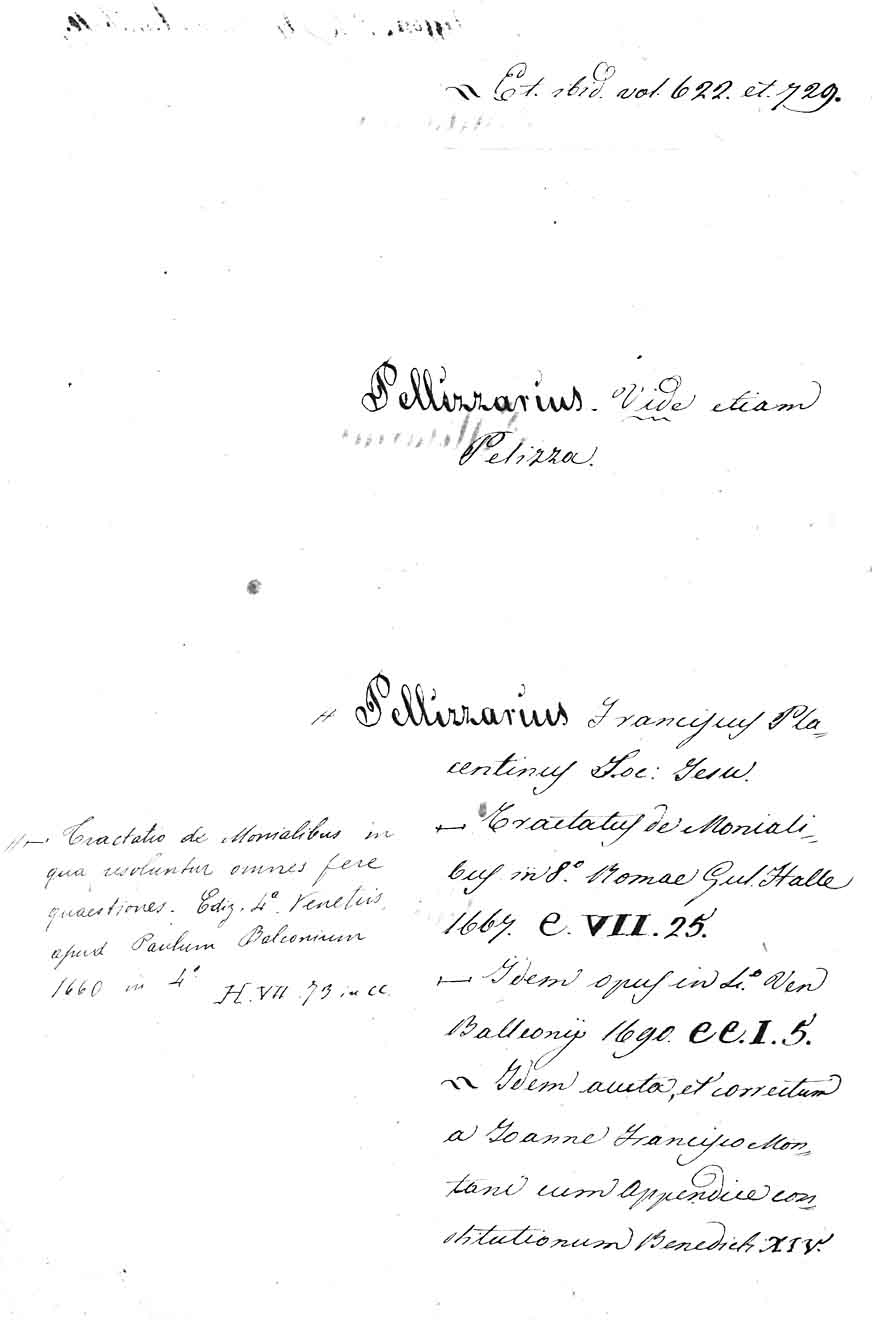 Et. ibid. vol. 622. et. 729.
Pellizzarius. Vide etiam
Pelizza.
Pellizzarius Franciscus Pla=
centinus Soc: Jesu.
Tractatus de Moniali=
bus in 8.° Romae Gul. Halle
1667. C. VII. 25.
Idem opus in 4.° Ven
Balleonij 1690. CC. I. 5.
Idem aucta, et correctum
a Joanne Francisco Mon=
tani cum Appendice con=
stitutionum Benedicti XIV.
Tractatio de Monialibus in
qua resoluntur omnes fere
quaestiones. Ediz. 4.ª Venetiis
apud Paulum Balconium
1660 in 4.° H. VII. 73 in CC.